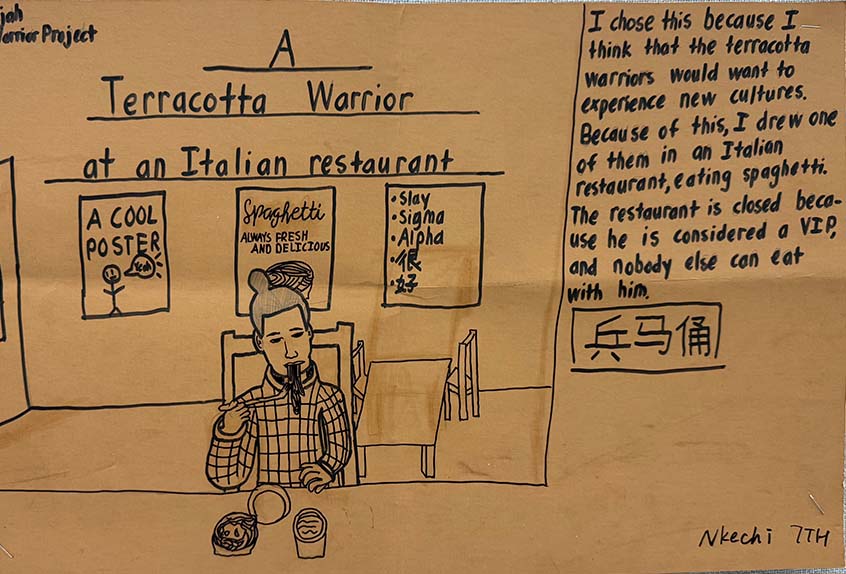 jah
arrior Project
A
Terracotta Warrior
at an Italian restaurant
A COOL
POSTER
Yeah
Spaghetti
ALWAYS FRESH
AND DELICIOUS
• Slay
• Sigma
• Alpha
• 很
• 好
I chose this because I
think that the terracotta
warriors would want to
experience new cultures.
Because of this, I drew one
of them in an Italian
restaurant, eating spaghetti.
The restaurant is closed beca-
use he is considered a VIP,
and nobody else can eat
with him.
兵马俑
Nkechi 7TH